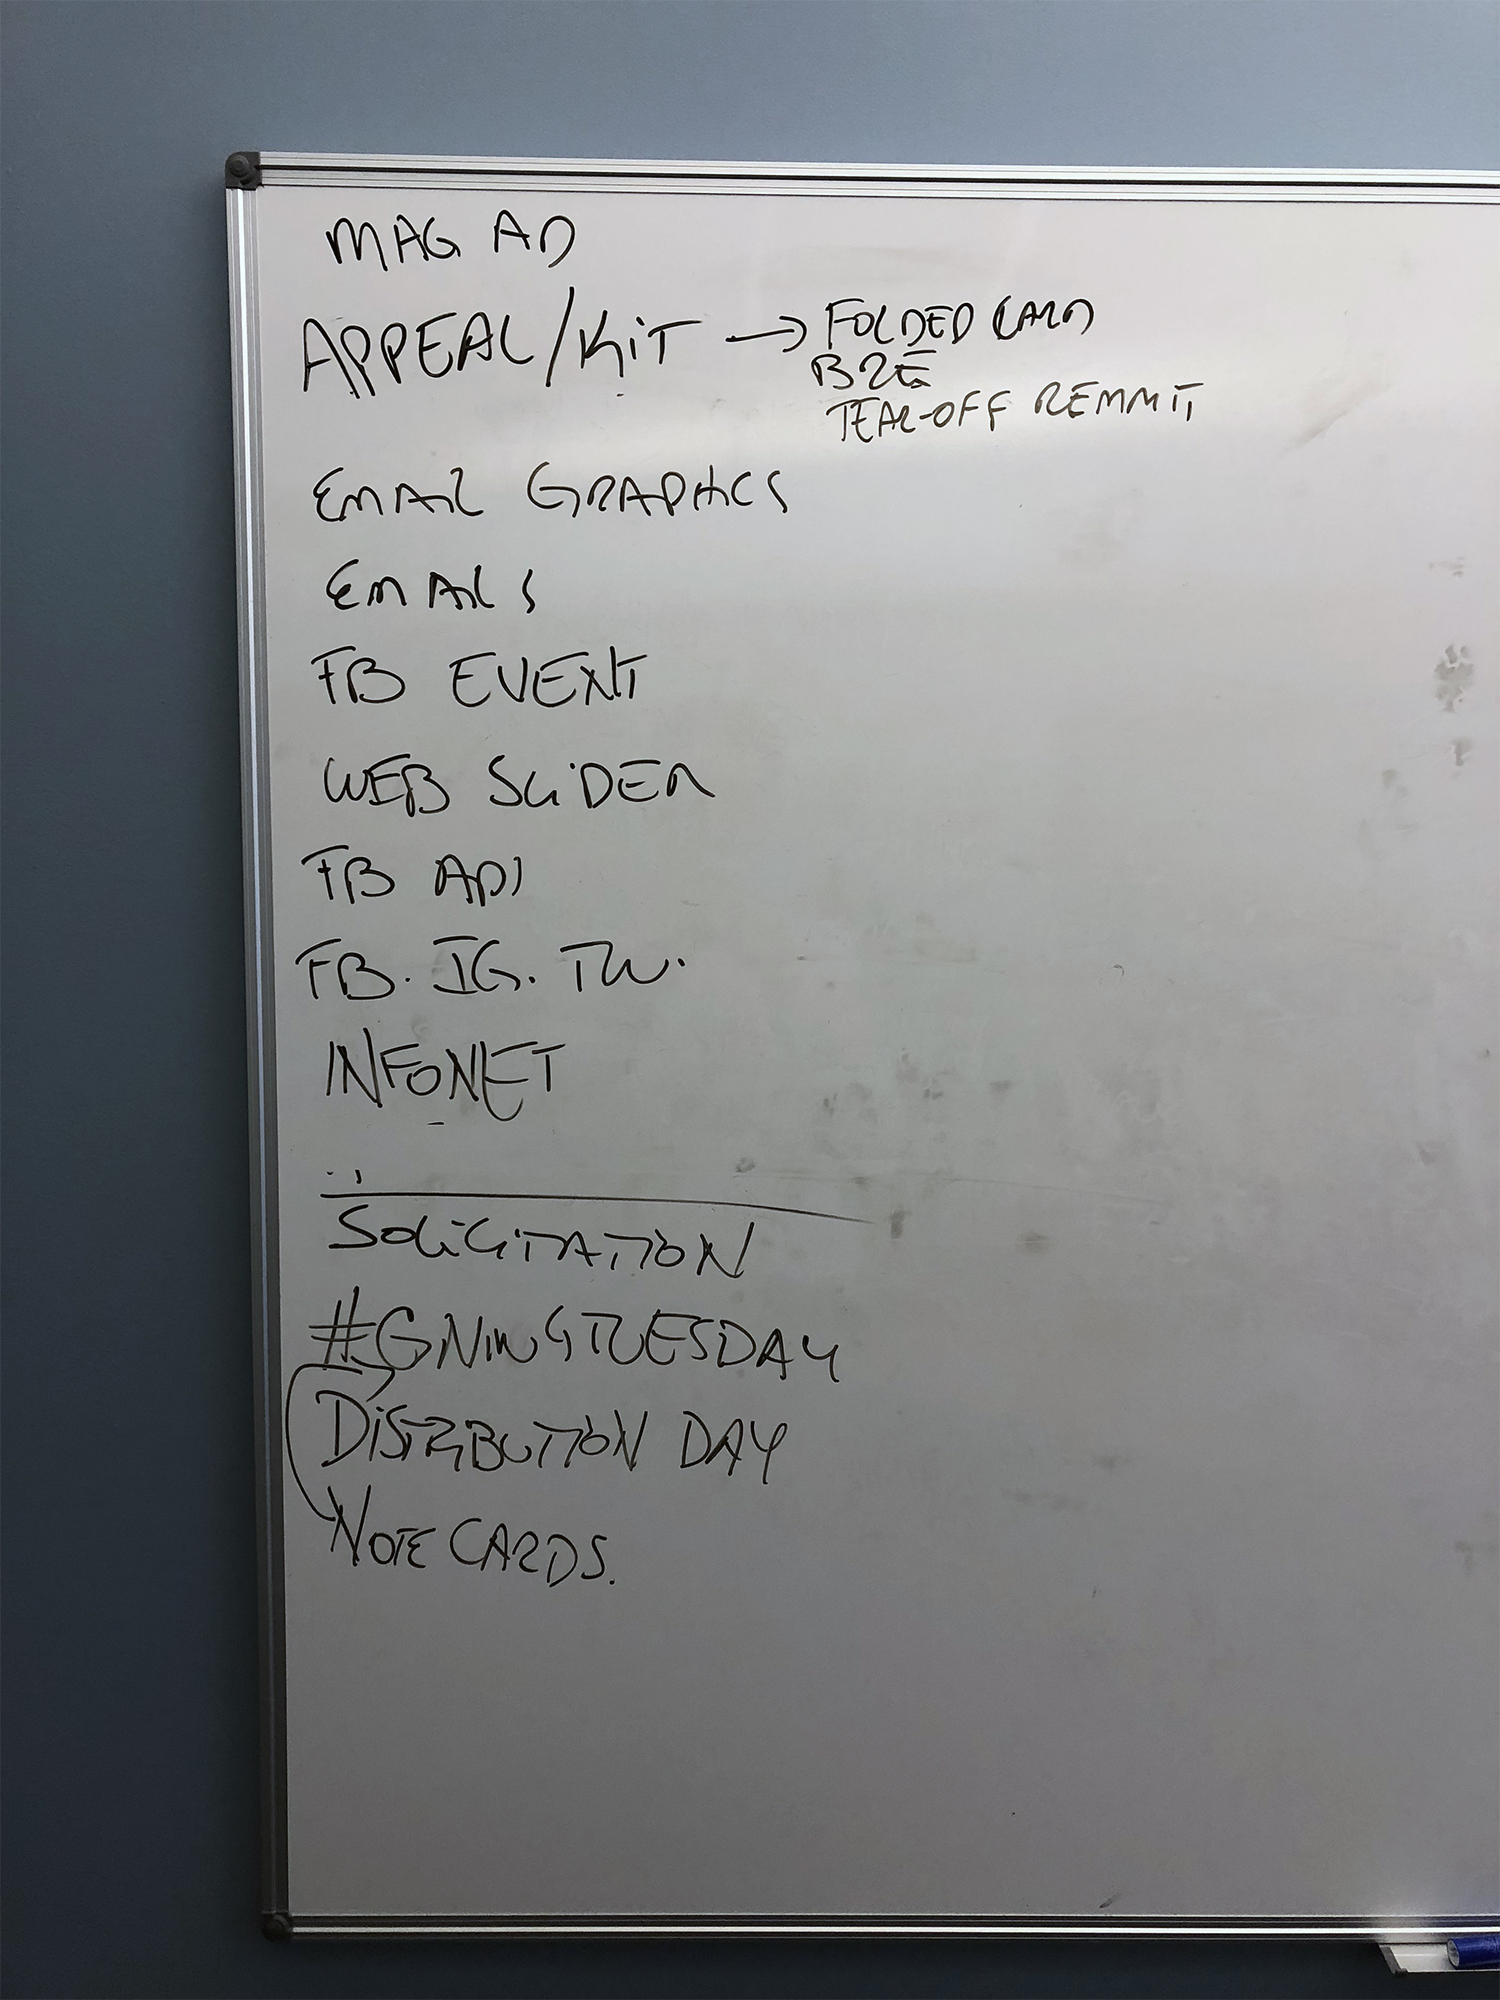 MAG AD
APPEAL/KiT → FOLDED CARD
BRE
TEAR-OFF REMMIT
EMAIL GRAPHICS
EMAILS
FB EVENT
WEB SLiDER
FB ADS
FB. IG. TW.
INFONET
SOLiCiTATION
#GIVINGTUESDAY
DiSTRIBUTION DAY
NOTE CARDS.